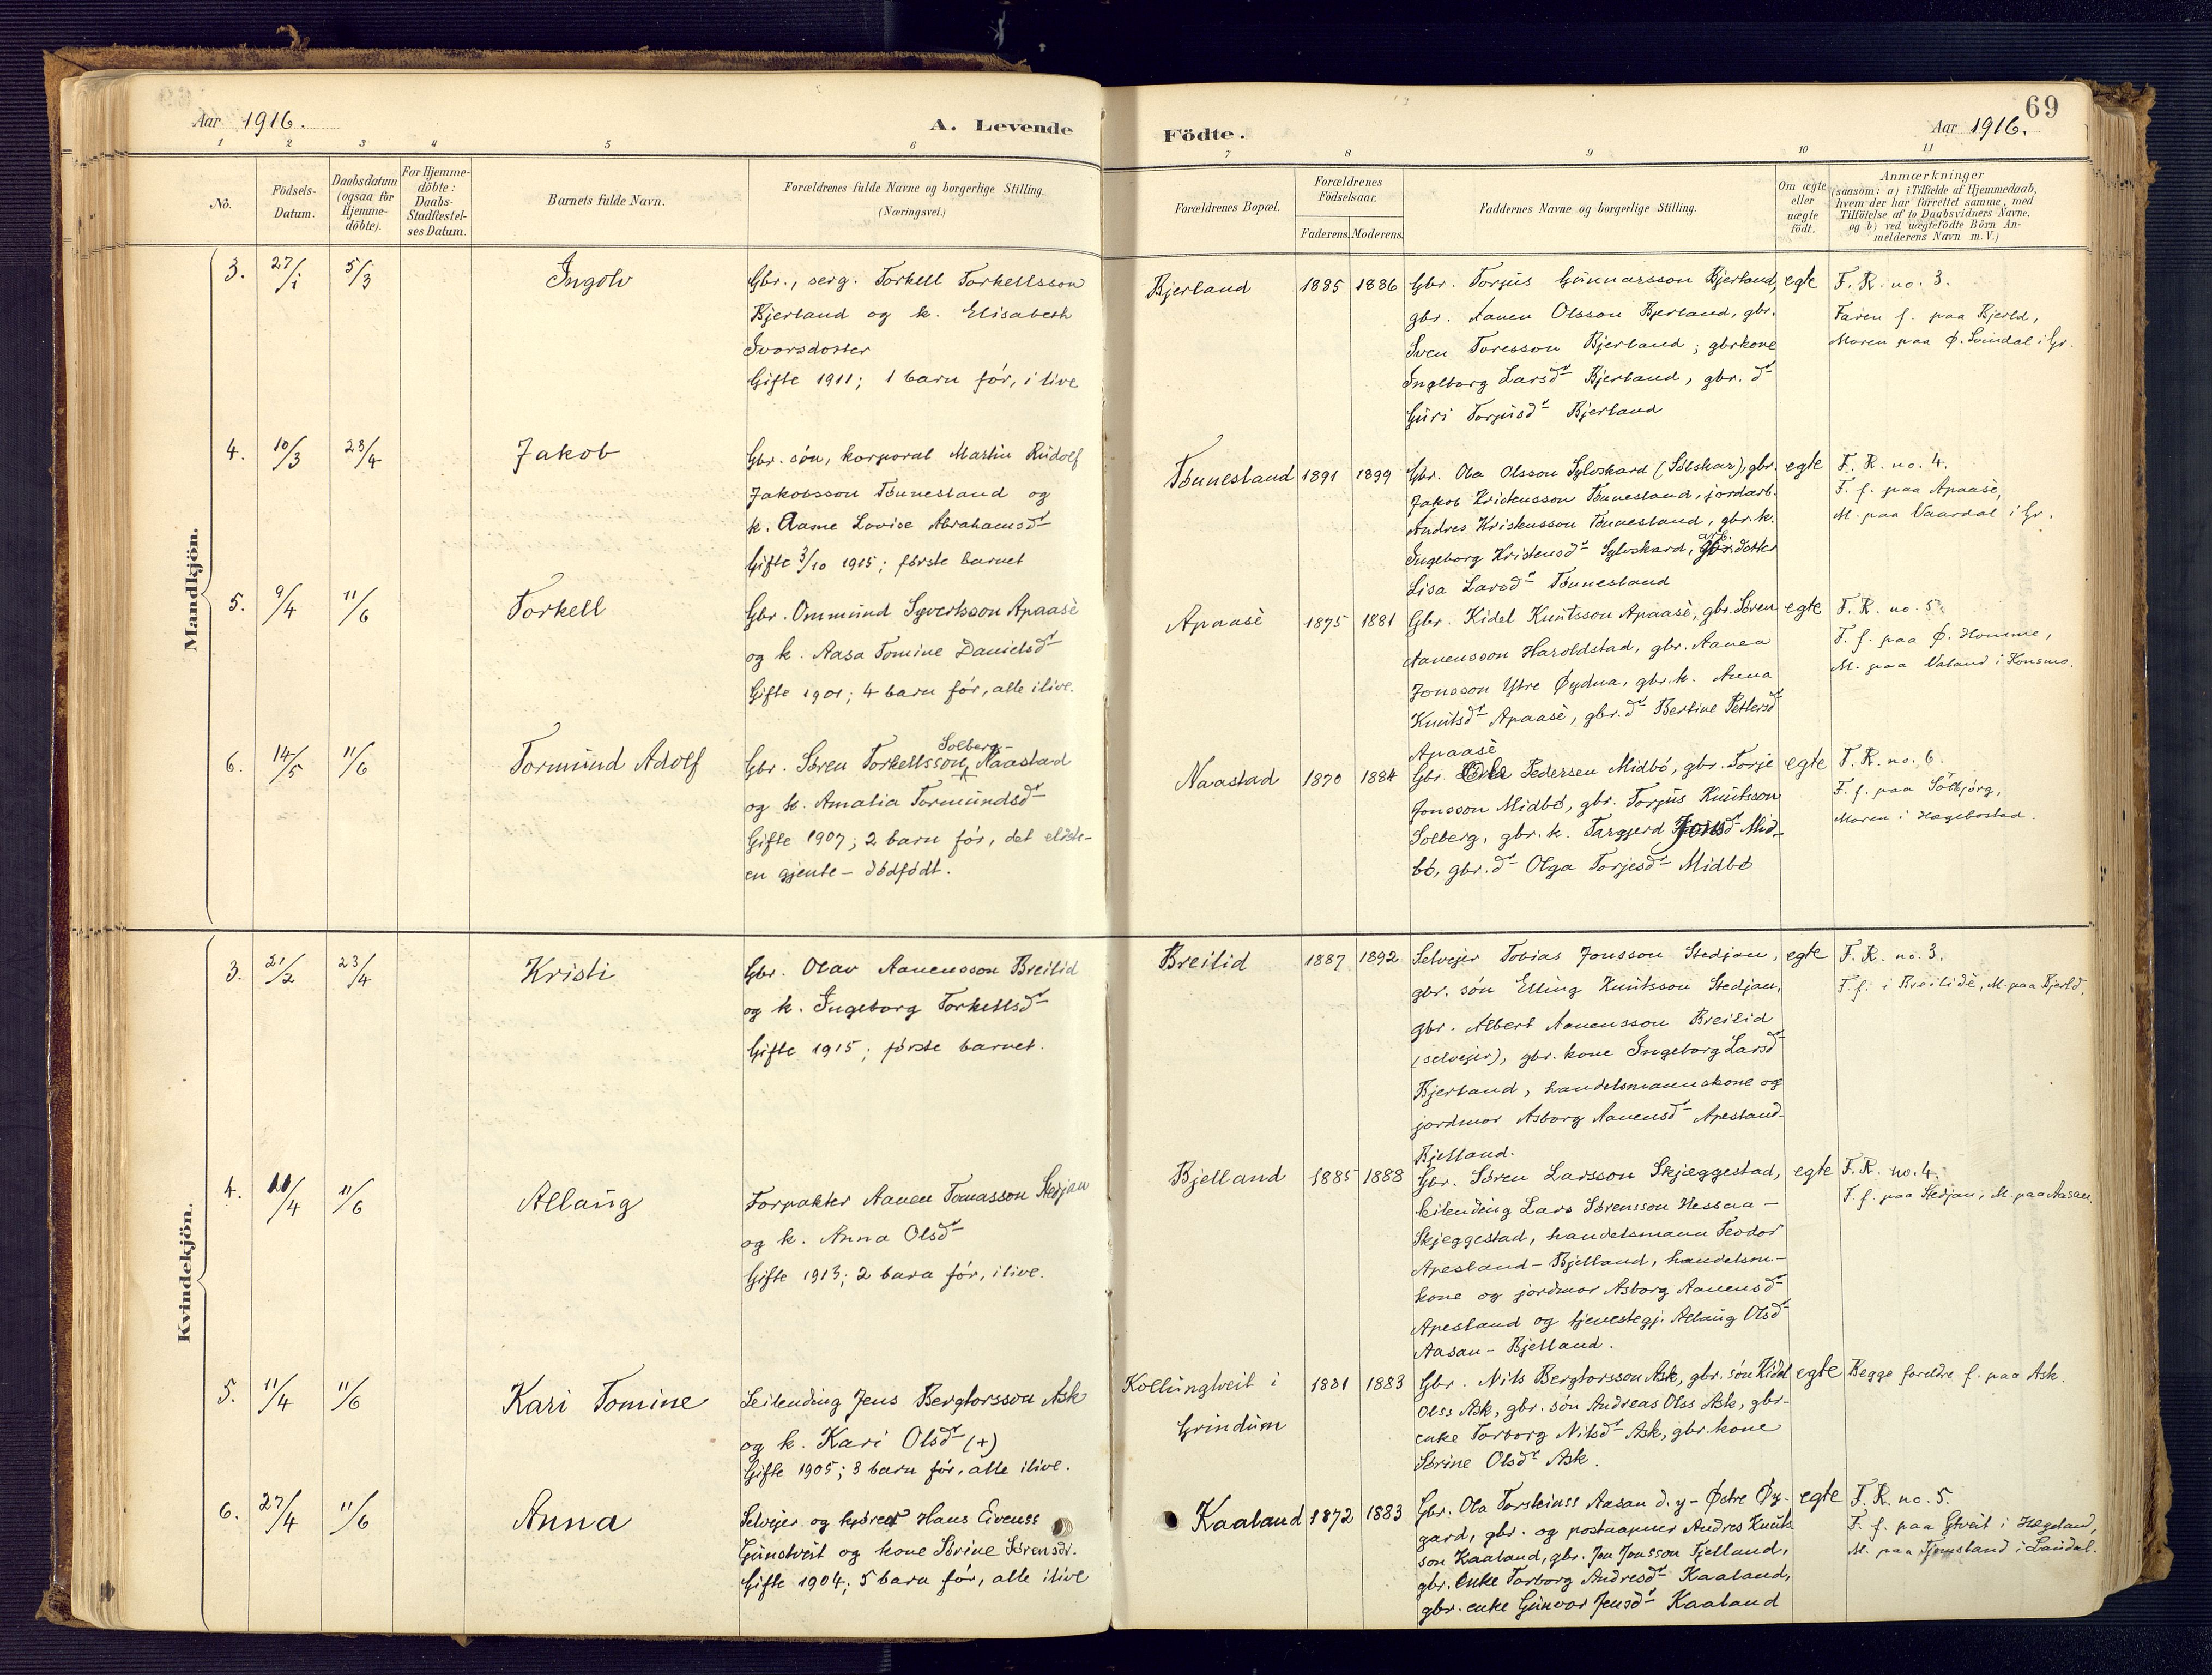 69
Aar 1916.
A. Levende
Födte.
Aar 1916.
1 2 3 4 5 6 7 8 9 10 11
No.
Födsels-
Datum.
Daabsdatum
(ogsaa for
Hjemme-
döbte).
For Hjemme-
döbte:
Daabs-
Stadfæstel-
ses Datum.
Barnets fulde Navn.
Forældrenes fulde Navne og borgerlige Stilling.
(Næringsvei.)
Forældrenes Bopæl.
Forældrenes
Födselsaar.
Faderens. Moderens.
Faddernes Navne og borgerlige Stilling.
Om ægte
eller
uægte
födt.
Anmærkninger
(saasom: a) i Tilfælde af Hjemmedaab,
hvem der har forrettet samme, med
Tilföielse af to Daabsvidners Navne,
og b) ved uægtefödte Börn An-
melderens Navn m. V.)
Mandkjön.
3. 27/1 5/3 Ingolv
Gbr., serg. Torkell Torkellsson
Bjerland og k. Elisabeth
Ivarsdotter
Gifte 1911; 1 barn før, i live
Bjerland 1885 1886
Gbr. Torjus Gunnarsson Bjerland,
gbr. Aanen Olsson Bjerland, gbr.
Sven Toresson Bjerland; gbrkone
Ingeborg Larsdr Bjerland, gbr. dr
Guri Torjusdr Bjerland
egte
F. R. no. 3.
Faren f. paa Bjerld,
Moren paa Ø. Svindal i Gr.
4. 10/3 23/4 Jakob
Gbr. søn, korporal Martin Rudolf
Jakobsson Tønnesland og
k. Aasne Lovise Abrahamsdr
Gifte 3/10 1915; første barnet
Tønnesland 1891 1899
Gbr. Ola Olsson Sylvskard (Sølskar), gbr.
Jakob Kristensson Tønnesland, jordarb.
Andres Kristensson Tønnesland, gbr. k.
Ingeborg Kristensdr Sylvskard, dotter
Lisa Larsdr Tønnesland
egte
F. R. no. 4.
F. f. paa Apaasè,
M. paa Vaardal i Gr.
5. 9/4 11/6 Torkell
Gbr. Ommund Syvertsson Apaasè
og k. Aasa Tomine Danielsdr
Gifte 1901; 4 barn før, alle ilive.
Apaasè 1875 1881
Gbr. Kidel Knutsson Apaasè, gbr. Søren
Aanensson Haroldstad, gbr. Aanen
Jonsson Ytre Øydna, gbr. k. Anna
Knutsdr Apaasè, gbr. dr Bertine Pettersdr
Apaasè
egte
F. R. no. 5.
F. f. paa Ø. Homme,
M. paa Valand i Konsmo.
6. 14/5 11/6 Tormund Adolf
Solberg-
Gbr. Søren Torkellsson Naastad
og k. Amalia Tormundsdr
Gifte 1907; 2 barn før, det eldste-
en gjente – dødfødt.
Naastad 1870 1884
Gbr. Ole Pedersen Midbø, gbr. Torje
Jonsson Midbø, gbr. Torjus Knutsson
Solberg, gbr. k. Targjerd Jonsdr Mid-
bø, gbr. dr Olga Torjesdr Midbø
egte
F. R. no. 6.
F. f. paa
Moren i Hægebostad.
Kvindekjön.
3. 21/2 23/4 Kristi
Gbr. Olav Aanensson Breilid
og k. Ingeborg Torkellsdr
Gifte 1915; første barnet.
Breilid 1887 1892
Selvejer Tobias Jonsson Stedjan,
gbr. søn Elling Knutsson Stedjan,
gbr. Albert Aanensson Breilid
(selvejer), gbr. kone Ingeborg Larsdr
Bjerland, handelsmannskone og
jordmor Asborg Aanensdr Apesland-
Bjelland.
egte
F. R. no. 3.
F. f. i Breilidè, M. paa Bjerld.
4. /4 11/6 Allaug
Forpakter Aanen Tomasson Stedjan
og k. Anna Olsdr
Gifte 1913; 2 barn før, ilive.
Bjelland 1885 1888
Gbr. Søren Larsson Skjæggestad,
leilending Lars Sørensson Hessaa –
Skjeggestad, handelsmann Teodor
Apesland – Bjelland, handelsm.-
kone og jordmor Asborg Aanensdr
Apesland og tjenestegj. Allaug Olsdr
Aasan – Bjelland.
egte
F. R. no. 4.
F. f. paa Stedjan, M. paa Aasan.
5. 11/4 11/6 Kari Tomine
Leilending Jens Bergtorsson Ask
og k. Kari Olsdr (+)
Gifte 1905; 3 barn før, alle ilive.
Kollungtveit i
Grindum
1881 1883
Gbr. Nils Bergtorsson Ask, gbr. søn Kiddel
Olss Ask, gbr. søn Andreas Olss Ask, gbr-
enke Torborg Nilsdr Ask, gbr. kone
Sørine Olsdr Ask.
egte
Begge foreldre f. paa Ask.
6. 27/4 11/6 Anna
Selvejer og Hans Eivenss
Gunstveit og kone Sørine Sørensdr.
Gifte 1904; 5 barn før, alle ilive
Kaaland 1872 1883
Gbr. Ola Torsteinss Aasan d.y – Østre Øy-
gard, gbr. og postaapner Andres Knuts
son Kaaland, gbr. Jon Jonsson Fjelland,
gbr. enke Torborg Andresdr Kaaland,
gbr. enke Gunvor Jensdr Kaaland
egte
F. R. no. 5.
F. f. paa i Hægeland,
M. paa i Laudal.